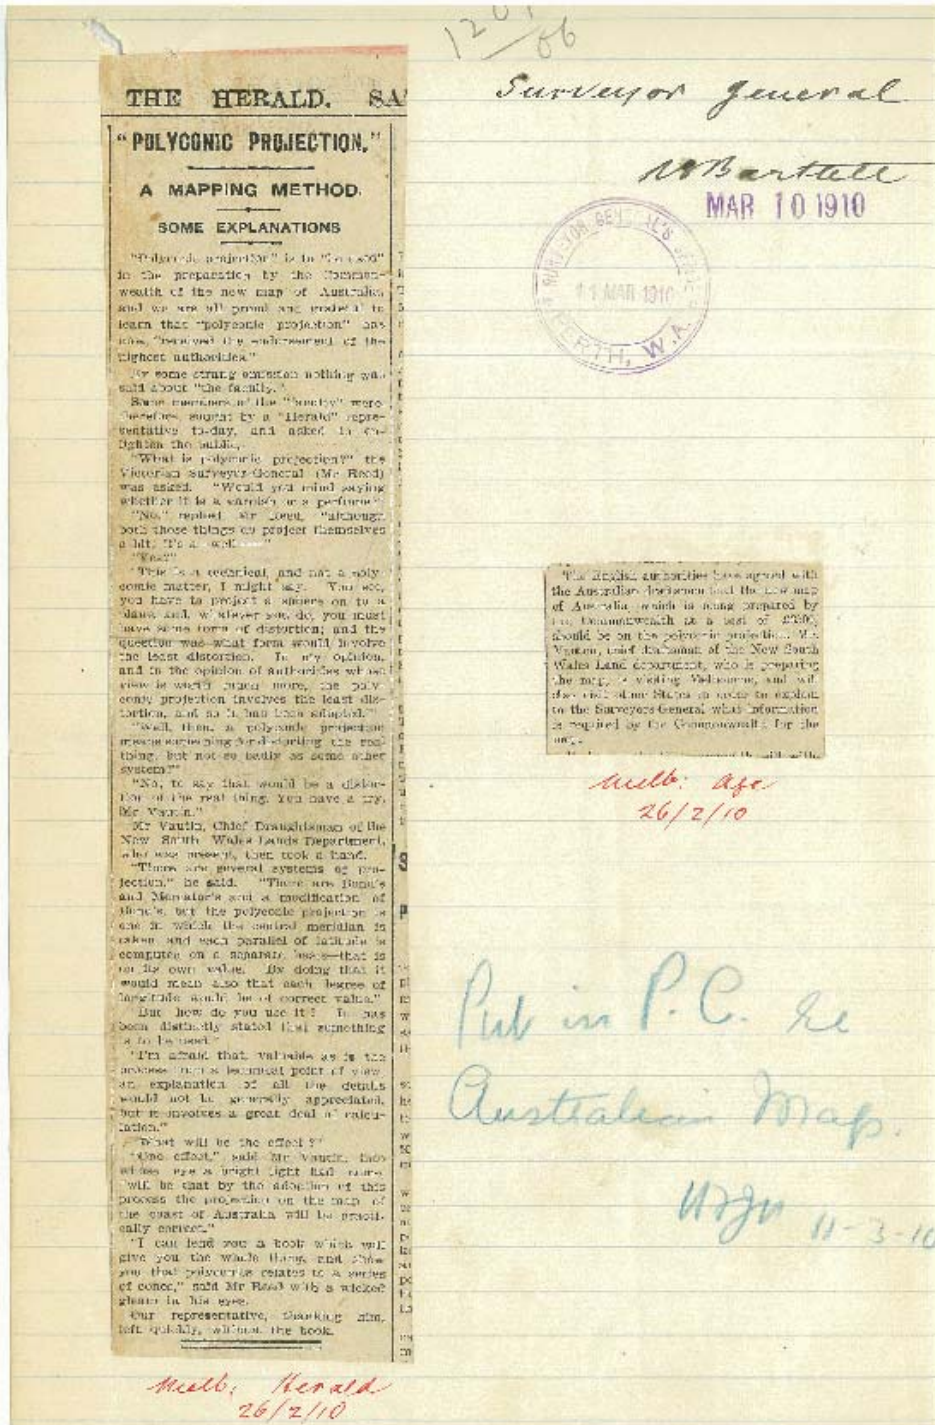 1201/06
THE HERALD. SA
"POLYCONIC PROJECTION."
A MAPPING METHOD.
SOME EXPLANATIONS
"Polyconic projection" is to "be used"
in the preparation by the Common-
wealth of the new map of Australia,
and we are all proud and grateful to
learn that "polyconic projection" has
"received the endorsement of the
highest authorities."
By some strang omission nothing was
said about "the faculty."
Some members of the "faculty" were
therefore sought by a "Herald" repre-
sentative to-day, and asked to en-
lighten the public.
"What is polyconic projection?" the
Victorian Surveyor-General (Mr Reed)
was asked. "Would you mind saying
whether it is a varnish or a perfume?"
"No," replied Mr Reed, "although
both those things do project themselves
a bit. It's a—well——"
"Yes?"
"This is a technical, and not a poly-
comic matter, I might say. You see,
you have to project a sphere on to a
plane and, whatever you do, you must
have some form of distortion; and the
question was what form would involve
the least distortion. In my opinion,
and in the opinion of authorities whose
view is worth much more, the poly-
conic projection involves the least dis-
tortion, and so it has been adopted."
"Well, then, a polyconic projection
means something for distorting the real
thing, but not so badly as some other
system?"
"No, to say that would be a distor-
tion of the real thing. You have a try,
Mr Vautin."
Mr Vautin, Chief Draughtsman of the
New South Wales Lands Department,
who was present, then took a hand.
"There are several systems of pro-
jection," he said. "There are Bonne's
and Mercator's and a modification of
Bonne's, but the polyconic projection is
one in which the central meridian is
taken and each parallel of latitude is
computed on a separate basis—that is
on its own value. By doing that it
would mean also that each degree of
longitude would be of correct value."
"But how do you use it? It has
been distinctly stated that something
is to be used."
"I'm afraid that, valuable as is the
process from a technical point of view
an explanation of all the details
would not be generally appreciated,
but it involves a great deal of calcu-
lation."
"What will be the effect?"
"One effect," said Mr Vautin, into
whose eye a bright light had come
"will be that by the adoption of this
process the projection on the map of
the coast of Australia will be practi-
cally correct."
"I can lend you a book which will
give you the whole thing, and show
you that polyconics relates to a series
of cones," said Mr Reed with a wicked
gleam in his eyes.
Our representative, thanking him,
left quickly, without the book.
Melb: Herald
26/2/10
Surveyor General
W Bartlett
MAR 10 1910
SURVEYOR GENERAL'S OFFICE
11 MAR 1910
PERTH, W.A.
The English authorities have agreed with
the Australian draftsmen that the new map
of Australia, which is being prepared by
the Commonwealth at a cost of
should be on the polyconic projection. Mr.
Vautin, chief draftsman of the New South
Wales Land department, who is preparing
the map, is visiting Melbourne, and will
also visit other States in order to explain
to the Surveyors-General what information
is required by the Commonwealth for the
map.
Melb: Age
26/2/10
Put in P.C. re
Australian Map.
11-3-10